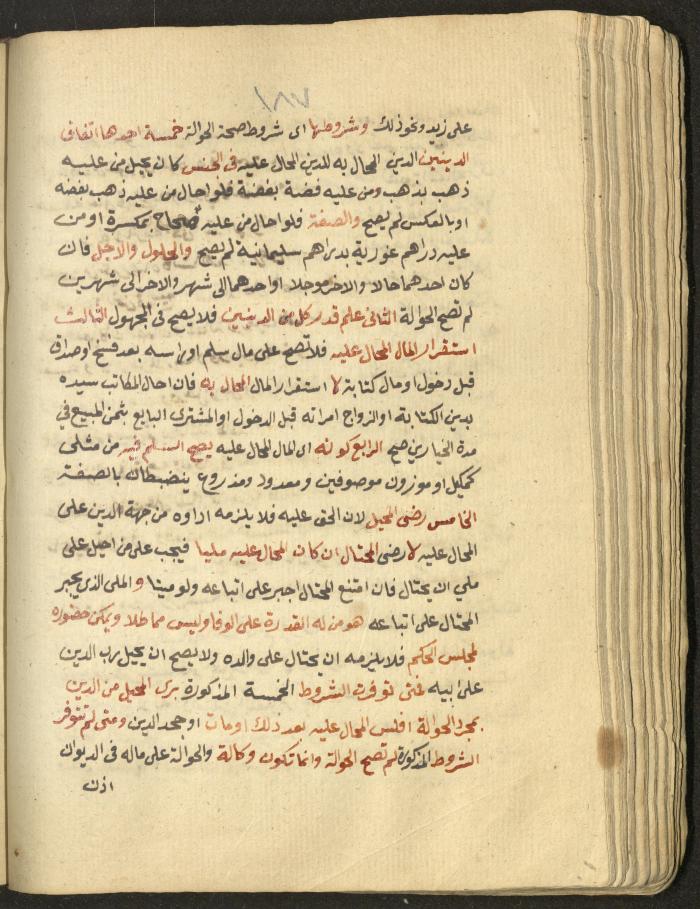 ١٨٧
على زيد ونحو ذلك وشروطها اى شروط صحة الحوالة خمسة احدها اتفاق
الدينين الدين المحال به للدين المحال عليه فى الجنس كان يحيل من عليه
ذهب بذهب ومن عليه فضة بفضة فلو احال من عليه ذهب بفضه
او بالعكس لم يصح والصفة فلو احال من عليه صحاح بمكسرة او من
عليه دراهم غورية بدراهم سليمانية لم يصح والحلول والاجل فان
كان احدهما حالا والاخر موجلا او احدهما الى شهر والاخر الى شهرين
لم تصح الحوالة الثانى علم قدر كل من الدينين فلا يصح فى المجهول الثالث
استقرار المال المحال عليه فلا تصح على مال سلم او راسه بعد فسخ او صداق
قبل دخول او مال كتابة لا استقرار المال المحال به فان احال المكاتب سيده
بدين الكتابة او الزواج امراته قبل الدخول او المشترى البايع بثمن المبيع فى
مدة الخيارين صح الرابع كونه اى المال المحال عليه يصح السلم فيه من مثلى
كمكيل او موزون موصوفين ومعدود ومذروع ينضبطان بالصفة
الخامس رضى المحيل لان الحق عليه فلا يلزمه اداوه من جهة الدين على
المحال عليه لا رضى المحتال ان كان المحال عليه مليا فيجب على من احيل على
ملي ان يحتال فان امتنع المحتال اجبر على اتباعه ولو ميتا والملى الذي يجبر
المحتال على اتباعه هو من له القدرة على الوفا وليس مماطلا ويمكن حضوره
لمجلس الحكم فلا يلزمه ان يحتال على والده ولا يصح ان يحيل رب الدين
على ابيه فمتى توفرت الشروط الخمسة المذكورة برى المحيل من الدين
بمجرد الحوالة افلس المحال عليه بعد ذلك او مات او جحد الدين ومتى لم تتوفر
الشروط المذكورة لم تصح الحوالة وانما تكون وكالة والحوالة على ماله فى الديوان
اذن